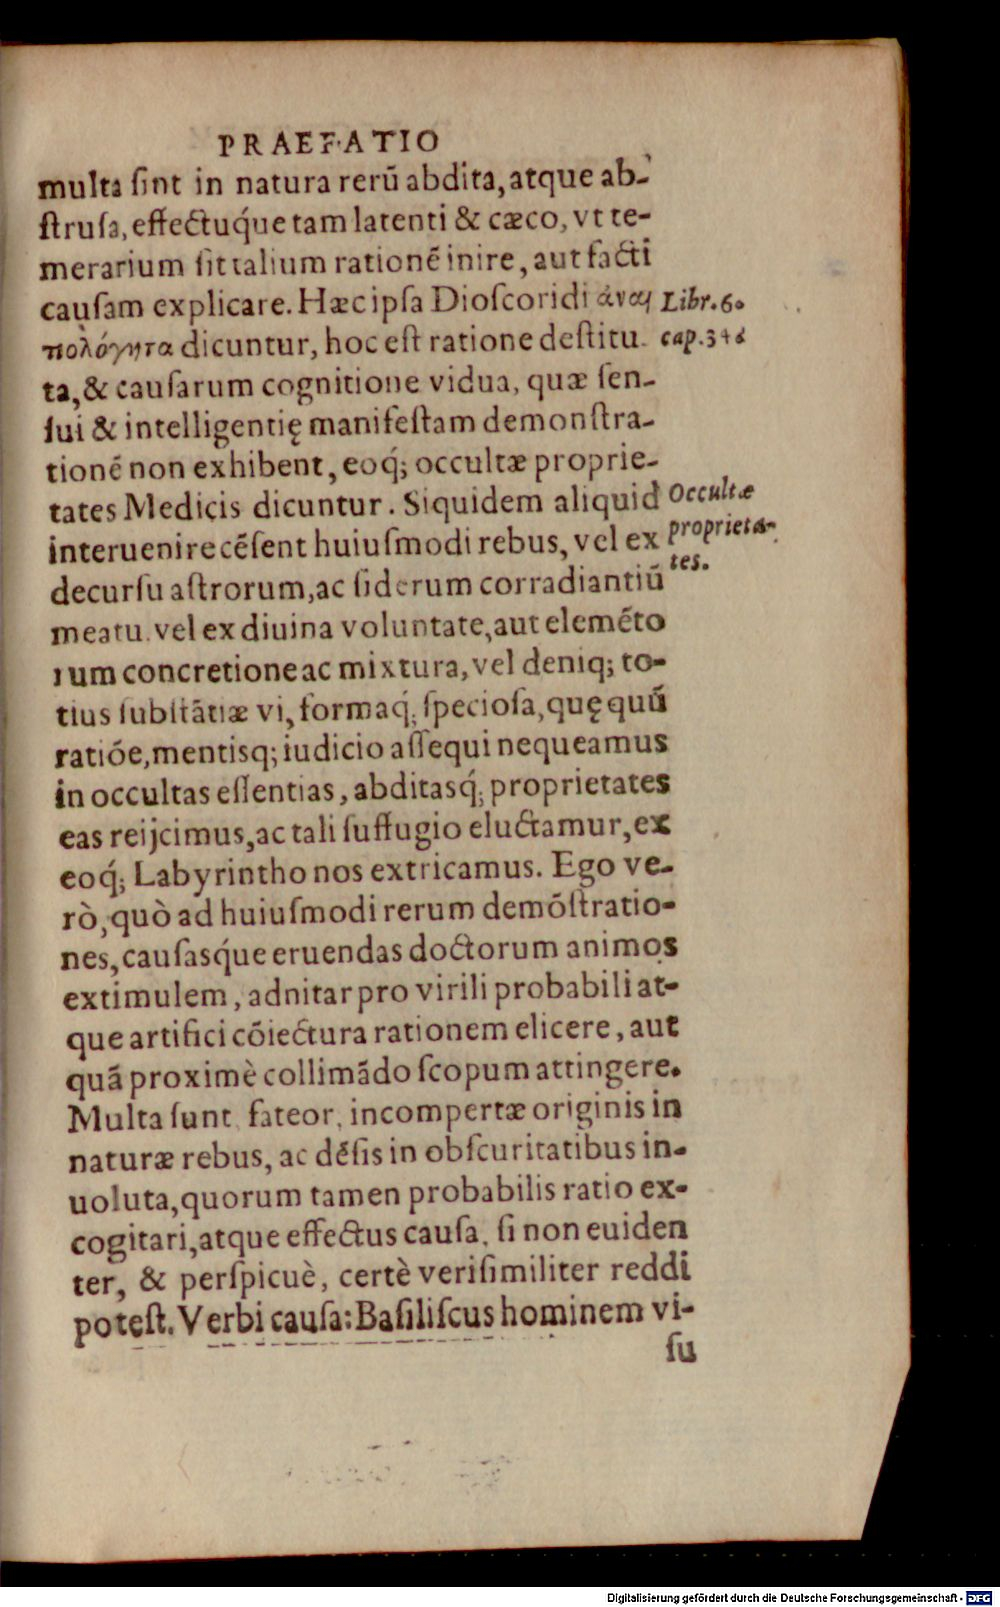 PRAEFATIO
multa ſint in natura rerũ abdita, atque ab-
ſtruſa, effectuq́ue tam latenti & cæco, vt te-
merarium ſit talium rationẽ inire, aut facti
cauſam explicare. Hæc ipſa Dioſcoridi ἀναι
Libr. 6.
πολόγητα dicuntur, hoc eſt ratione deſtitu
cap. 34
ta, & cauſarum cognitione vidua, quæ ſen-
ſui & intelligentię manifeſtam demonſtra-
tionẽ non exhibent, eoq́; occultæ proprie-
tates Medicis dicuntur. Siquidem aliquid
Occultæ
interuenire cẽſent huiuſmodi rebus, vel ex
proprieta-
decurſu aſtrorum, ac ſiderum corradiantiũ
tes.
meatu. vel ex diuina voluntate, aut elemẽto
rum concretione ac mixtura, vel deniq; to-
tius ſubſtãtiæ vi, formaq́; ſpecioſa, quę quũ
ratiõe, mentisq; iudicio aſſequi nequeamus
in occultas eſſentias, abditasq́; proprietates
eas reijcimus, ac tali ſuffugio eluctamur, ex
eoq́; Labyrintho nos extricamus. Ego ve-
rò, quò ad huiuſmodi rerum demõſtratio-
nes, cauſasq́ue eruendas doctorum animos
extimulem, adnitar pro virili probabili at-
que artifici cõiectura rationem elicere, aut
quã proximè collimãdo ſcopum attingere.
Multa ſunt, fateor, incompertæ originis in
naturæ rebus, ac dẽſis in obſcuritatibus in-
uoluta, quorum tamen probabilis ratio ex-
cogitari, atque effectus cauſa, ſi non euiden
ter, & perſpicuè, certè veriſimiliter reddi
poteſt. Verbi cauſa: Baſiliſcus hominem vi-
ſu
Digitalisierung gefördert durch die Deutsche Forschungsgemeinschaft - DFG